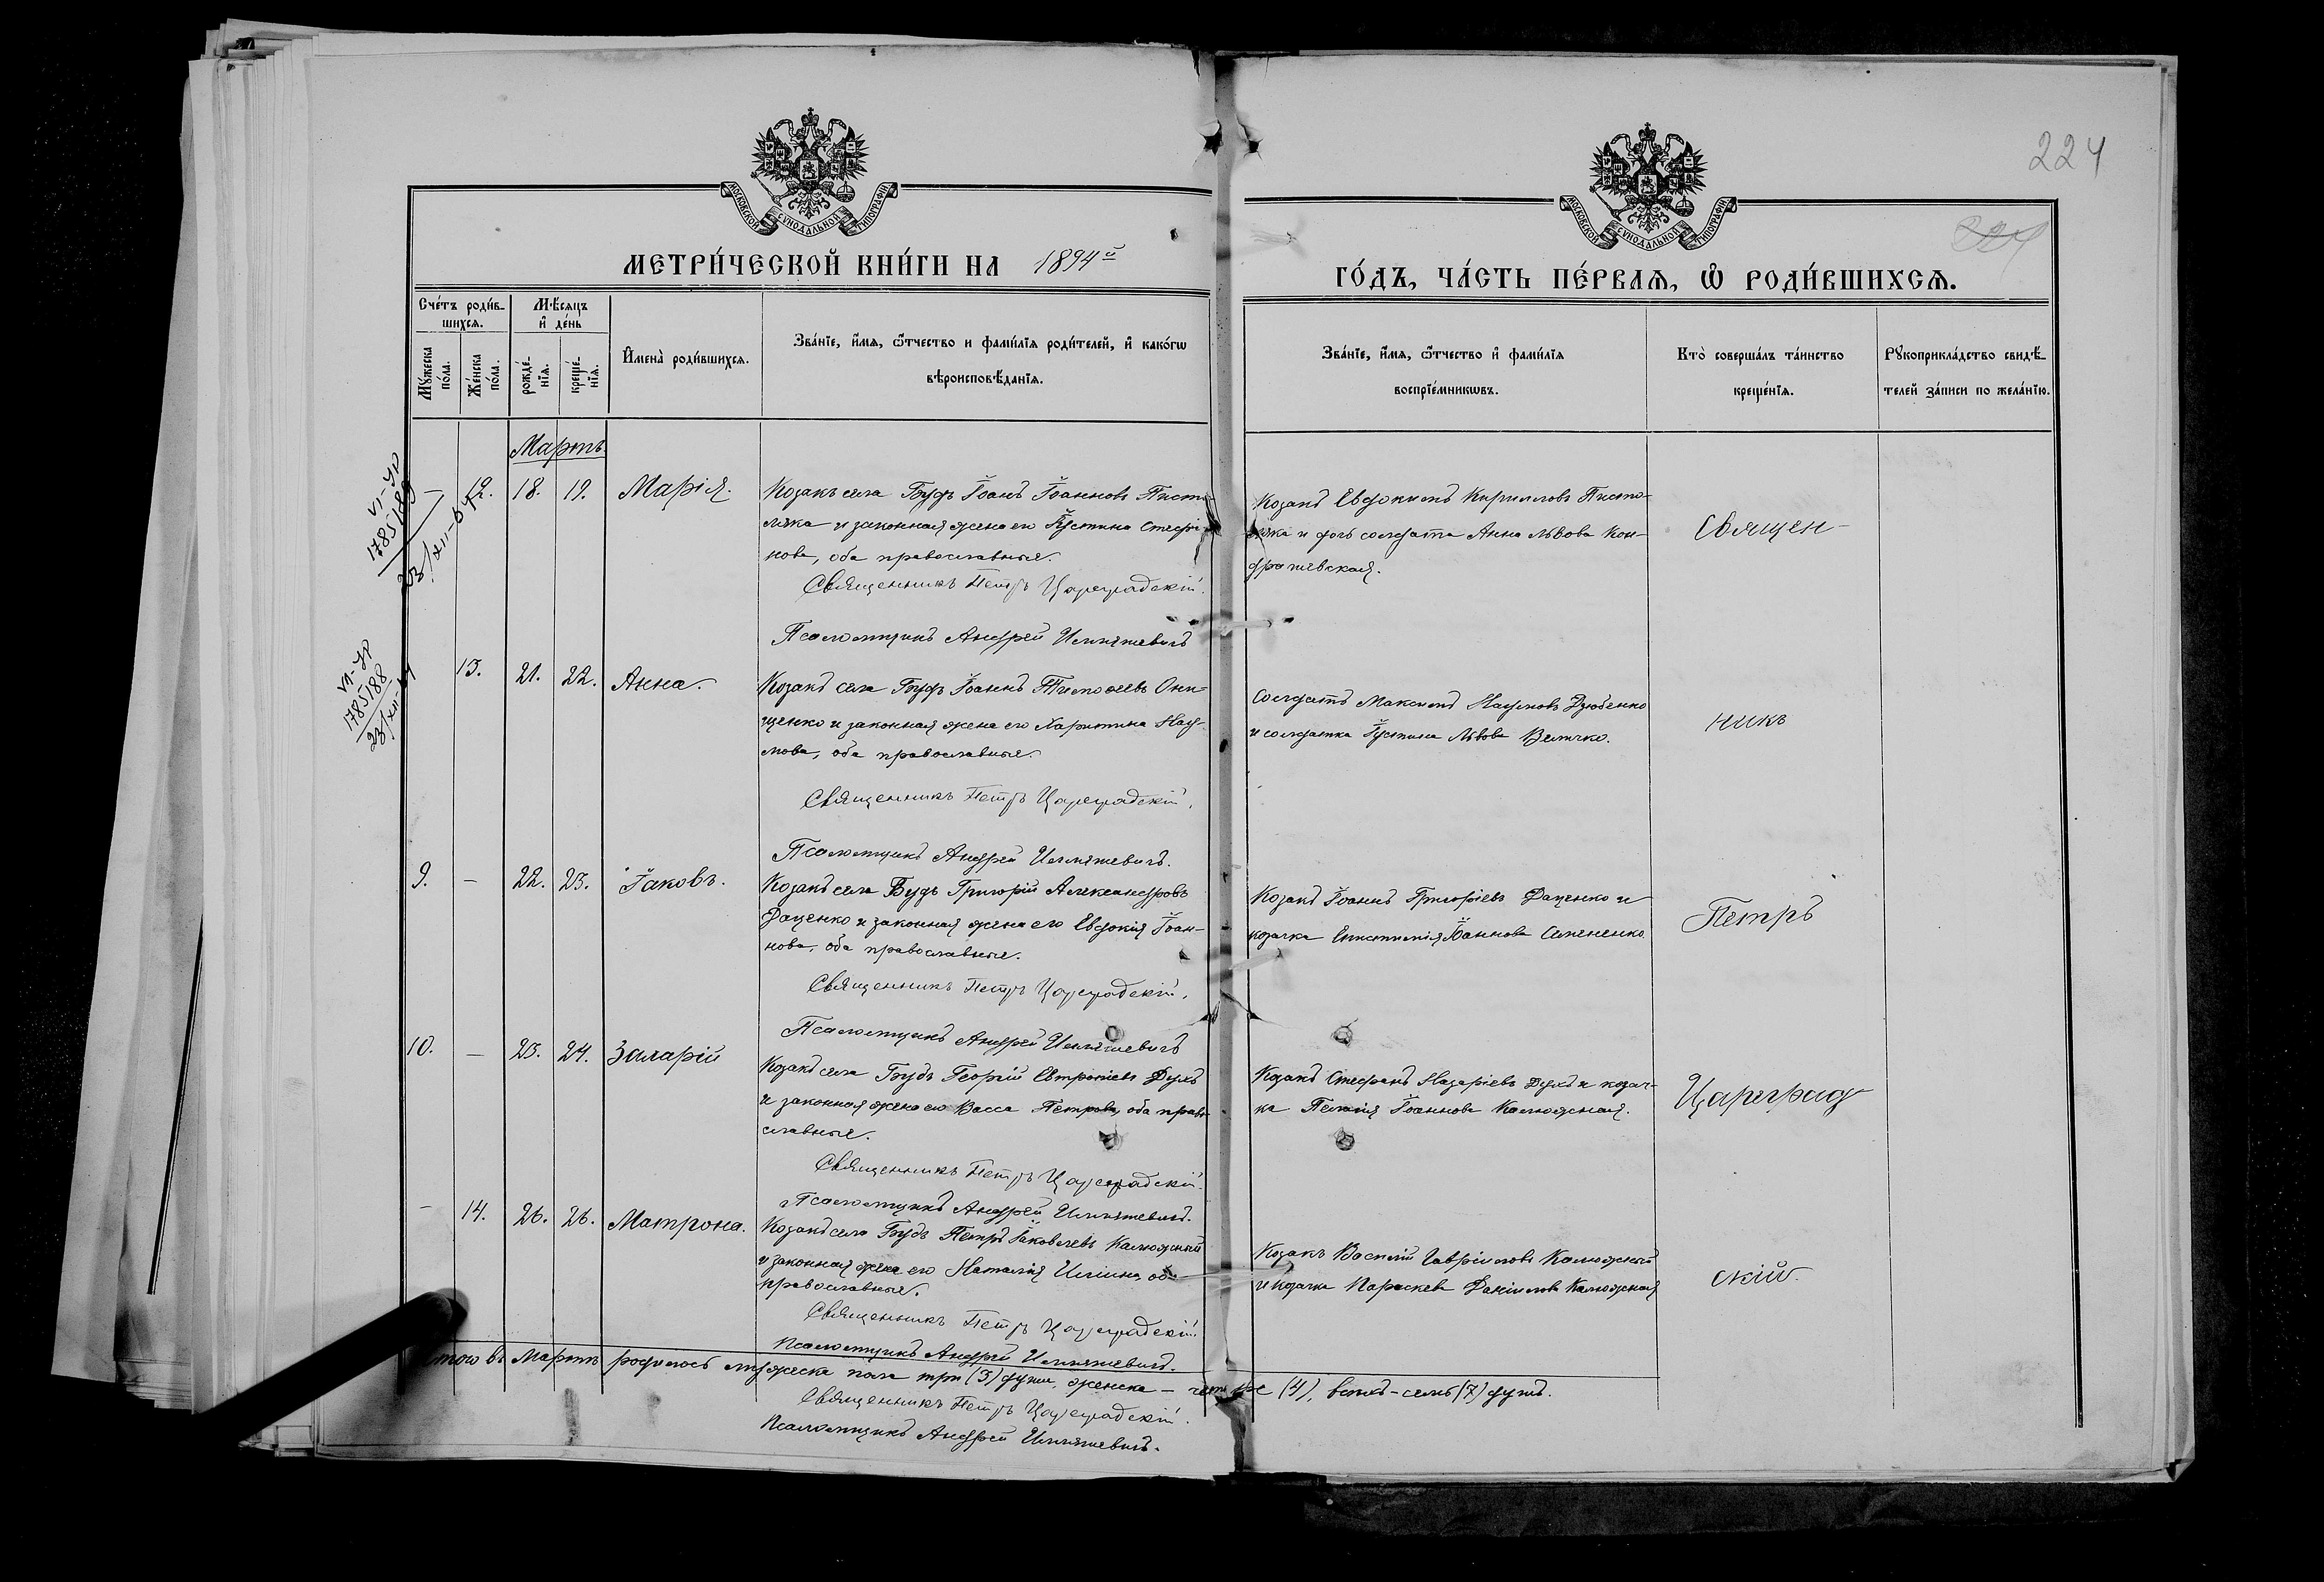 224
МОСКОВСКОЙ СУНОДАЛЬНОЙ ТИПОГРАФІИ
МОСКОВСКОЙ СУНОДАЛЬНОЙ ТИПОГРАФІИ
МЕТРИ́ЧЕСКОЙ КНИ́ГИ НА 1894й
ГО́ДЪ, ЧА́СТЬ ПЕ́РВАѦ, Ѡ РОДИ́ВШИХСѦ.
Сче́тъ роди́в-
шихсѧ.
Мꙋжеска по́ла.
Же́нска по́ла.
Мѣ́сѧцъ
и҆ де́нь
рожде́-
нїѧ.
креще́-
нїѧ.
И҆мена̀ роди́вшихсѧ.
Зва́нїе, и҆́мѧ, ѻ҆́тчество и фами́лїѧ роди́телей, и҆ како́гѡ
вѣроисповѣ́данїѧ.
Зва́нїе, и҆́мѧ, ѻ҆́тчество и҆ фами́лїѧ
воспрїе́мникѡвъ.
Кто̀ соверша́лъ та́инство
креще́нїѧ.
Рꙋкоприкла́дство свидѣ́-
телей за́писи по жела́нїю.
Мартъ.
VI-УР
1785189
23/XII-
– 12. 18. 19. Марія.
Козакъ села Будъ Іоанъ Іоанновъ Писто-
ляка и законная жена его Іустина Стефа-
нова, оба православные.
Священникъ Петръ Цареградскій.
Псаломщикъ Андрей Ильяшевичъ
Козакъ Евдокимъ Кирилловъ Писто-
ляка и дочь солдата Анна Львова Кон-
дратевская.
Священ-
VI-УР
1785188
23/XII-
13. 21. 22. Анна.
Козакъ села Будъ Іоаннъ Тимофеевъ Они-
щенко и законная жена его Харитина Нау-
мова, оба православные.
Священникъ Петръ Цареградскій.
Псаломщикъ Андрей Ильяшевичъ.
Солдатъ Максимъ Наумовъ Дзюбенко
и солдатка Іустина Львова Величко.
никъ
9. – 22. 23. Іаковъ.
Козакъ села Будъ Григорій Александровъ
Даценко и законная жена его Евдокія Іоан-
нова, оба православные.
Священникъ Петръ Цареградскій.
Псаломщикъ Андрей Ильяшевичъ
Козакъ Іоаннъ Григоріевъ Даценко и
козачка Епистимія Іоаннова Семененко.
Петръ
10. – 23. 24. Захарій
Козакъ села Будъ Георгій Евтропіевъ Духъ
и законная жена его Васса Петрова, оба право-
славные.
Священникъ Петръ Цареградскій.
Псаломщикъ Андрей Ильяшевичъ.
Козакъ Стефанъ Назаріевъ Духъ и козач-
ка Пелагія Іоаннова Калюжная.
Цареград
– 14. 26. 26. Матрона.
Козакъ села Будъ Петръ Іаковлевъ Калюжный
и законная жена его Наталія Иліина, оба
православные.
Священникъ Петръ Цареградскій.
Псаломщикъ Андрей Ильяшевичъ.
Козакъ Василій Гавріиловъ Калюжный
и козачка Параскева Даніилова Калюжная
скій.
Итого въ Мартѣ родилось мужеска пола три (3) души, женска – четыре (4), всѣхъ – семь (7) душъ.
Священникъ Петръ Цареградскій.
Псаломщикъ Андрей Ильяшевичъ.